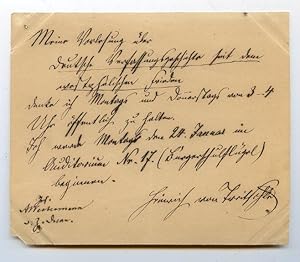 Meine Vorlesung über
Deutsche Verfassungsgeschichte seit dem
westphälischen Frieden
denke ich Montags und Donnerstags von 3-4
Uhr öffentlich zu halten.
Ich werde Montag den 24. Januar im
Auditorium Nr. 17. (Bürgerschulflügel)
beginnen.
Heinrich von Treitschke
d. Z. Decan.